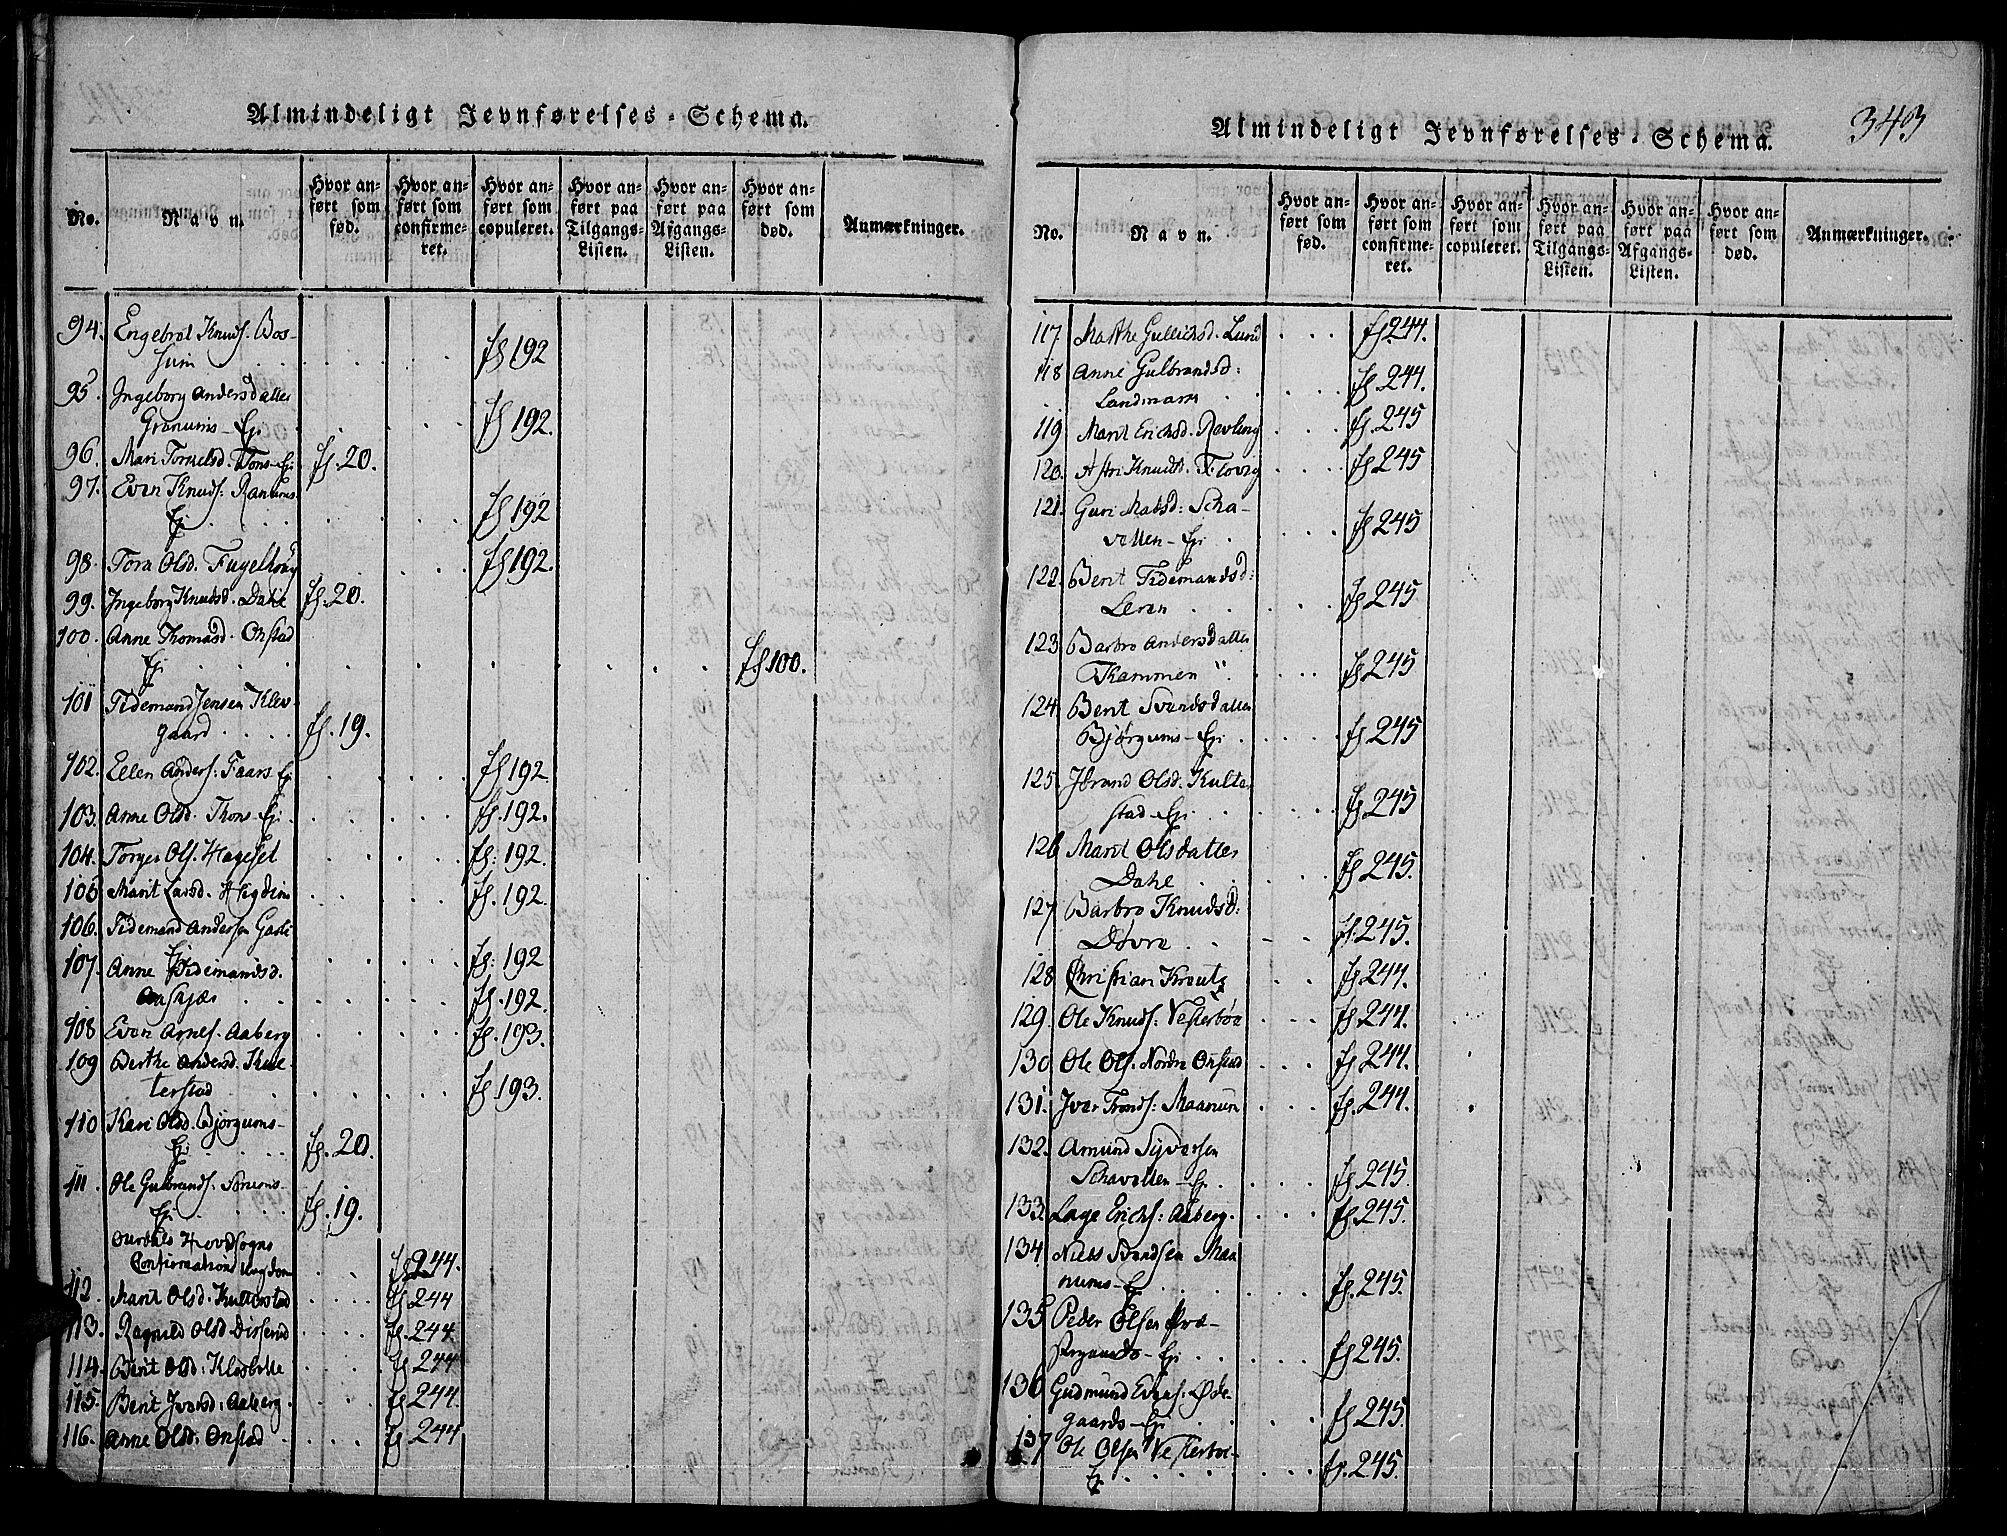 Almindeligt Jevnførelses-Schema.
No. Navn. Hvor anført som fød. Hvor anført som confirmeret. Hvor anført som copuleret. Hvor anført paa Tilgangs-Listen. Hvor anført paa Afgangs-Listen. Hvor anført som død. Anmærkninger.
94. Engebret Knuds.
fS 192
95. Ingeborg Andersdatter
Granums-Ej. fS 192.
96. Mari fS. 20.
97. Even Knuds. Ranums-
Ej. fS 192
98. Tora Olsd. Fugelhoug fS 192.
99. Ingeborg Knudsd. Dahl fS. 20.
100. Anne Thomasd. Onstad
Ej fS 100.
101 Tidemand Jensen Klev-
gaard fS. 19.
102. Ellen Anders. Faars Ej fS 192
103. Anne Olsd. Thons-Ej. fS. 192.
104. Torger Ols. Hageset fS: 192.
105 Marit Larsd. fS. 192.
106. Tidemand Andersen
Ej fS: 192
107. Anne Tidemandsd.
fS. 192.
108 Even Arnes. Aaberg fS. 193.
109 Berthe Andersd. Kul-
terstad fS 193.
110 Kari Olsd. Bjørgums-
Ej fS. 20.
111. Ole Gulbrands.
Ej. fS. 19.
Aurdals Hovedsogns
Confirmations Ungdom fS 244.
112. Marit Olsd. Kulterstad fS 244
113. Ragnild Olsd. fS. 244
114. Berit Olsd. fS 244
115. Berit Ivarsd. Aaberg. fS 244.
116. Anne Olsd. Onstad fS 244
Almindeligt Jevnførelses-Schema. 343
No. Navn. Hvor anført som fød. Hvor anført som confirmeret. Hvor anført som copuleret. Hvor anført paa Tilgangs-Listen. Hvor anført paa Afgangs-Listen. Hvor anført som død. Anmærkninger.
117. Marthe Gullichsd. Lund fS. 244.
118 Anne Gulbrandsd:
Landmark fS. 244.
119 Marit Erichsd. fS. 245
120. Astri Knudsd. fS 245
121. Guri Matsd: Scha-
vellen-Ej. fS 245
122. Berit Tidemandsd:
fS 245.
123 Barbro Andersdatter
Kammen fS 245
124. Berit Svendsdatter
Bjørgums-Ej fS 245
125. Jbrand Olsd. Kulter
stad-Ej. fS 245
126 Marit Olsdatter
Dahl fS 245.
127 Barbro Knudsd:
Døvre fS. 245.
128 Christian fS. 244.
129. Ole Knuds: Vesterbøe fS. 244.
130 Ole Ols. Nordre Onstad fS. 244.
131. Iver Tronds: Maanum fS. 244.
132. Amund Syversen
Schavellen-Ej. fS. 245.
133. Lage Erichs: Aaberg. fS. 245.
134. Niels Svendsen Maa
nums-Ej fS. 245.
135 Peder Olsen
Ej fS 245.
136 Gudmund Evens. Øde
gaards-Ej fS 245.
137 Ole Olsen Vesterbøe-
Ej fS. 245.